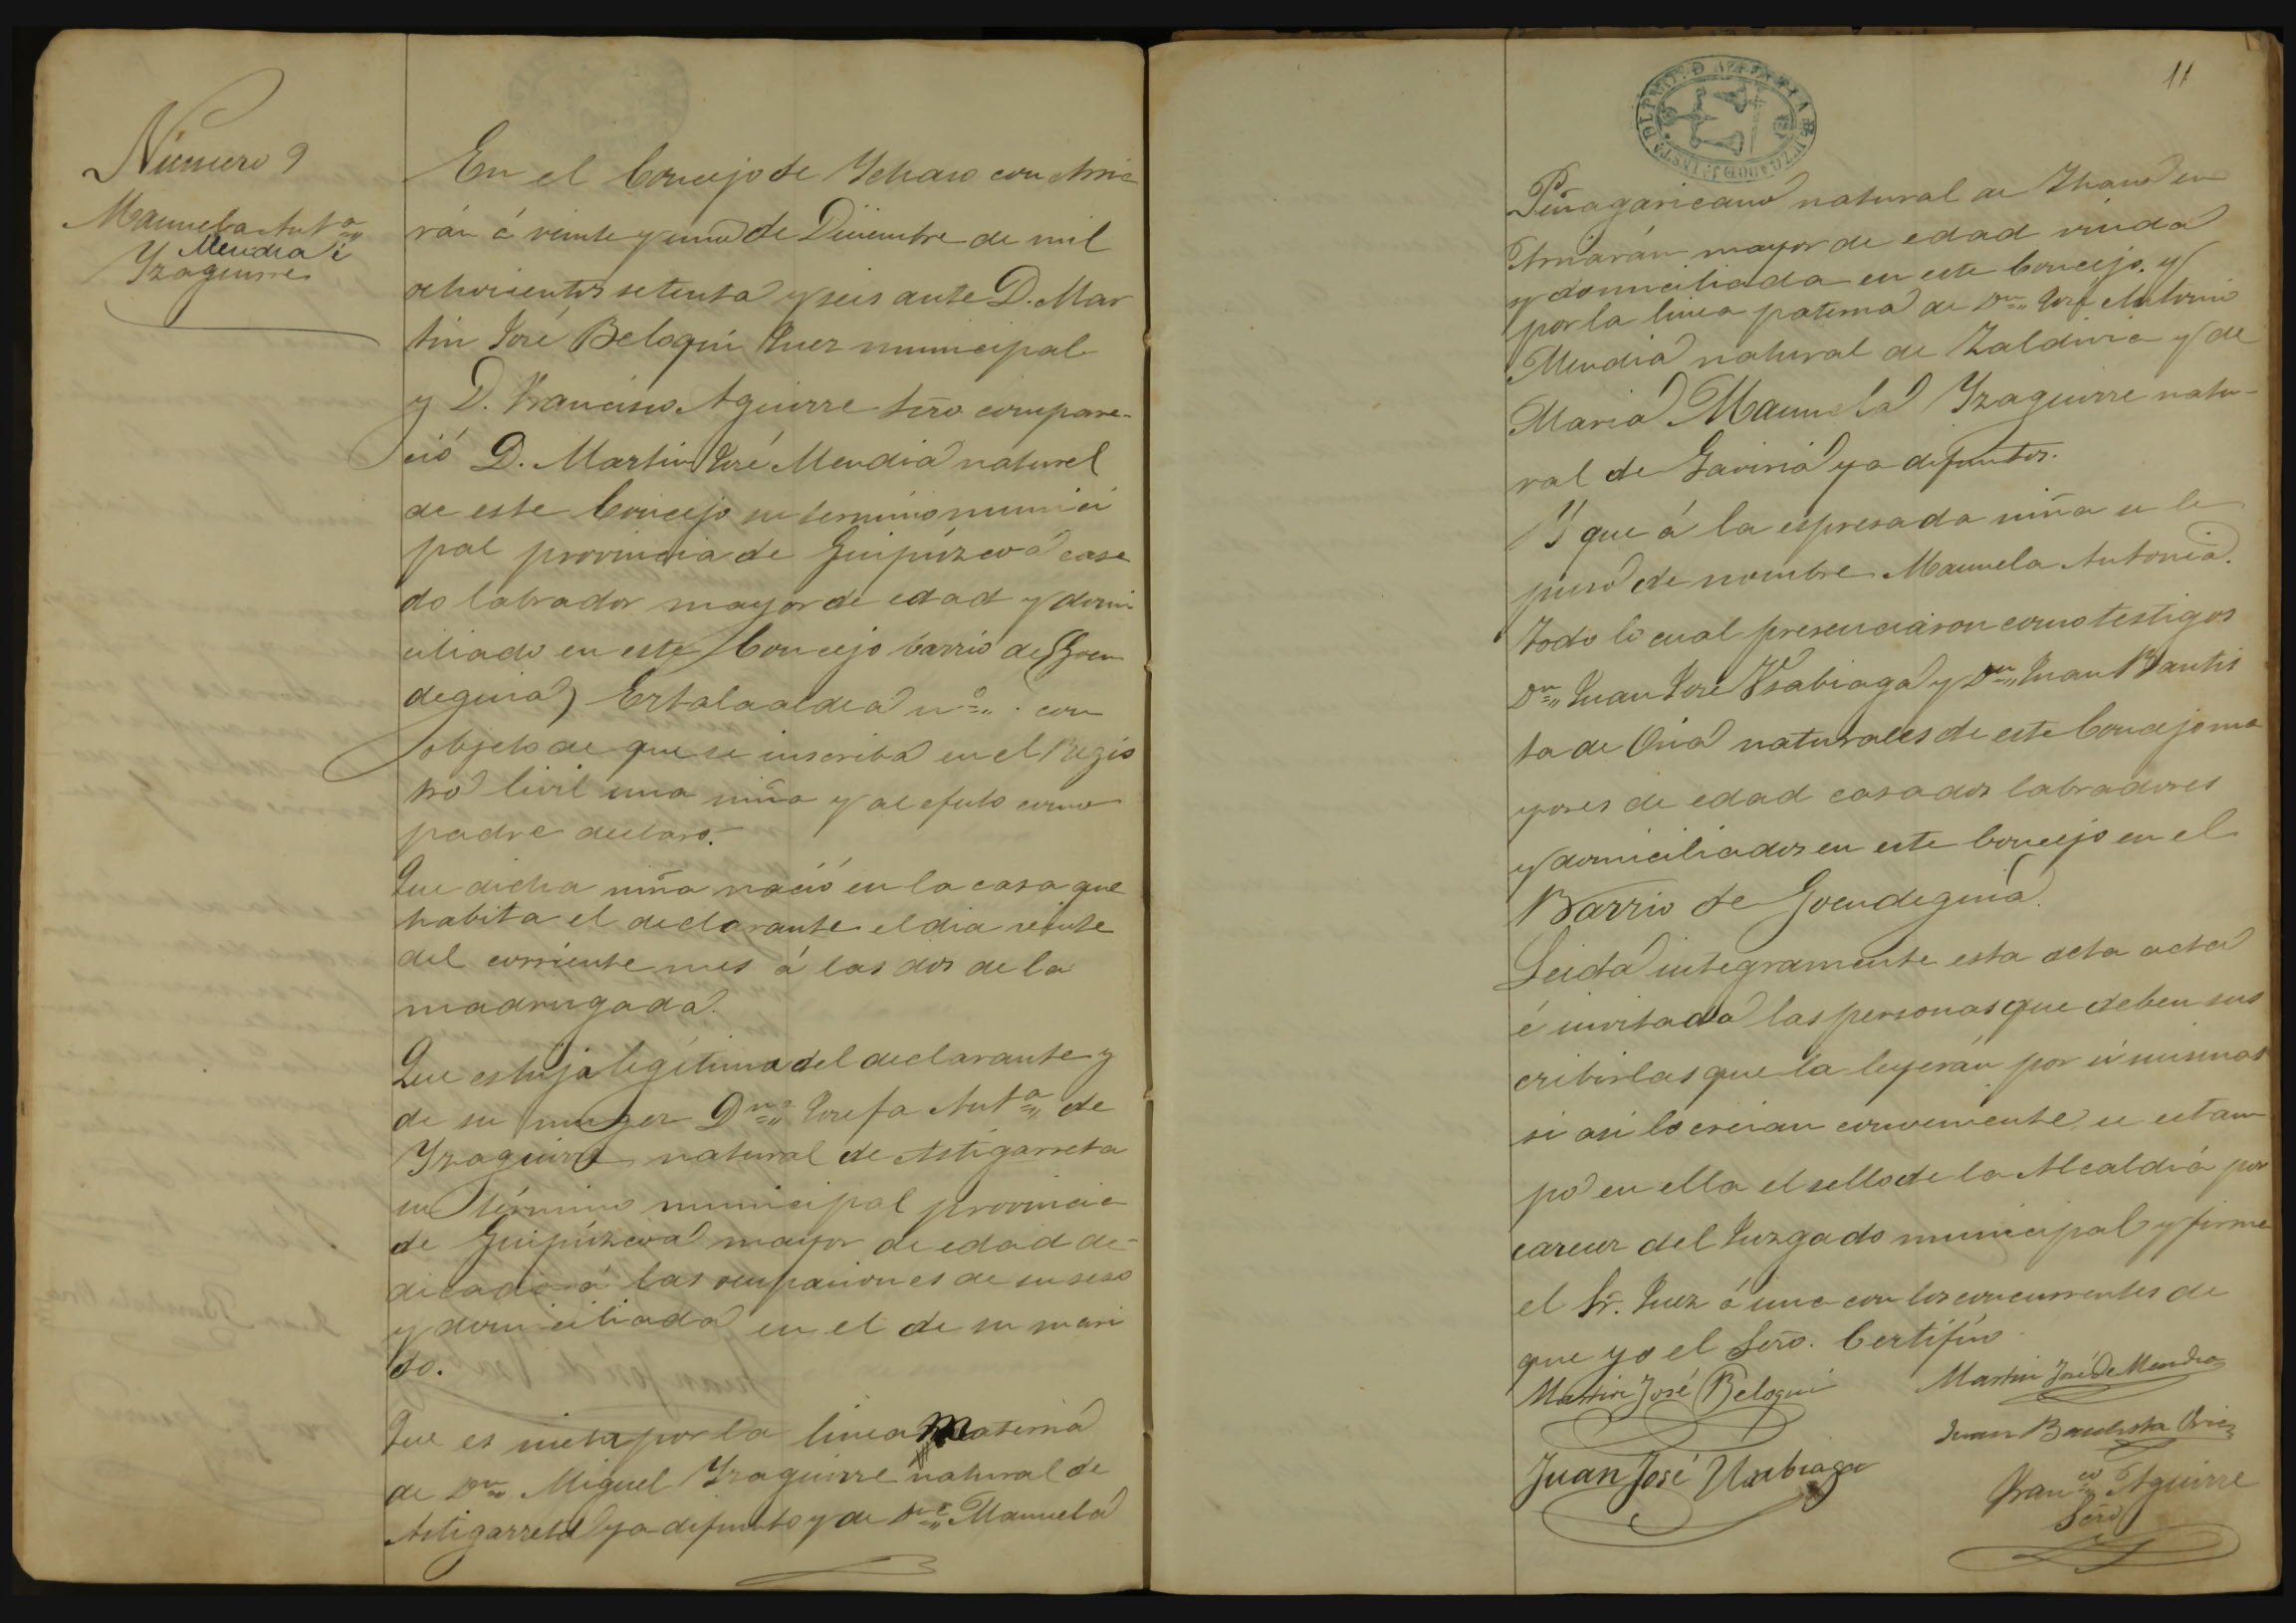 Número 9
Manuela Ant.ª
Mendia é
Yzaguirre
En el Concejo de Ychaso con Arria
rán á veinte y uno de Diciembre de mil
ochocientos setenta y seis ante D. Mar
tin José Beloqui Juez municipal
y D. Francisco Aguirre Srio. compare-
ció D. Martin José Mendia natural
de este Concejo su término munici
pal provincia de Guipúzcoa casa
do labrador mayor de edad y domi
ciliado en este Concejo barrio de (Goen
deguia) Ertalaaldea n.º con
objeto de que se inscriba en el Regis
tro Civil una niña y al efecto como
padre declaro.
Que dicha niña nació en la casa que
habita el declarante el dia veinte
del corriente mes á las dos de la
madrugada.
Que es hija legítima del declarante y
de su muger Dñª Josefa Ant.ª de
Yzaguirre natural de Astigarreta
su término municipal provincia
de Guipúzcoa mayor de edad de-
dicada á las ocupaciones de su seso
y domiciliada en el de su mari
do.
Que es nieta por la linea materna
de Dn Miguel Yzaguirre natural de
Astigarreta ya difunto y de Dñª Manuela
11
JUZGADO DE 1ª INSTª DEL PARTIDO DE AZPEITIA
Peñagaricano natural de Ihaso en
Arriarán mayor de edad viuda
y domiciliada en este Concejo. y
por la linea paterna de Dn José Antonio
Mendia natural de Zaldivia y de
Maria Manuela Yzaguirre natu-
ral de Gaviria ya difuntos.
Y que á la espresada niña se le
puso de nombre Manuela Antonia.
Todo lo cual presenciaron como testigos
Dn Juan José Usabiaga y Dn Juan Bautis
ta de Oria naturales de este Concejo ma
yores de edad casados labradores
y domiciliados en este Concejo en el
Barrio de Goendeguia.
Leida integramente esta acta acta
é invitada las personas que deben sus
cribirlas que la leyerán por sí mismas
si asi lo creian conveniente se estam
pó en ella el sello de la Alcaldiá por
carecer del Juzgado municipal y firma
el Sr. Juez á una con los concurrentes de
que yo el Srio. Certifico
Martin José Beloqui
Martin José de Mendia
Juan Bautista Oria
Juan José Usabiaga
Fran.co Aguirre
Srio